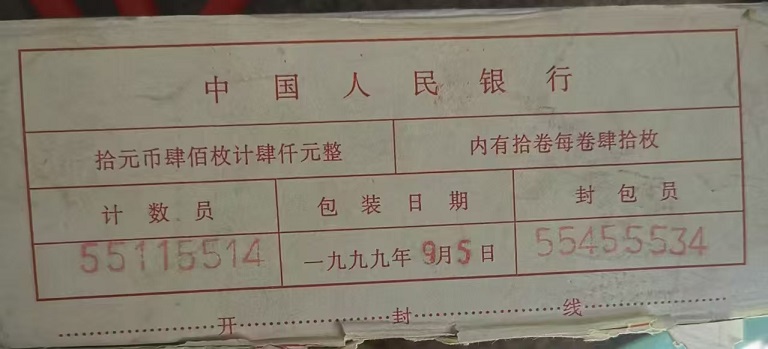 中国人民银行
拾元币肆佰枚计肆仟元整 内有拾卷每卷肆拾枚
计数员 包装日期 封包员
55115514 一九九九年9月5日 55455534
开封线